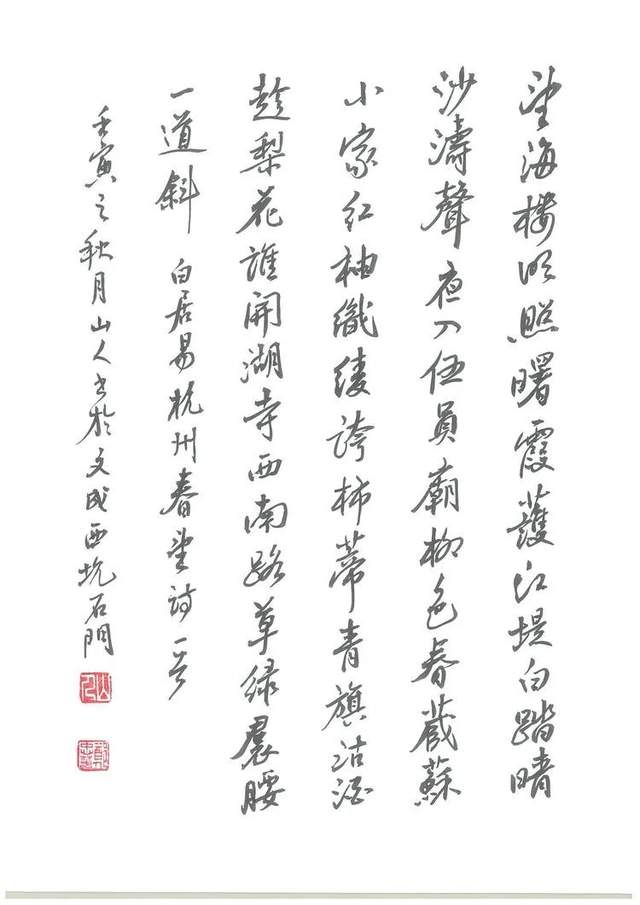 望海楼明照曙霞護江堤白踏晴
沙濤聲夜入伍員廟柳色春藏蘇
小家红袖織綾誇柿蒂青旗沽酒
趁梨花誰開湖寺西南路草绿裙腰
一道斜 白居易杭州春望詩一首
壬寅之秋月山人書於文成西坑石門
山人